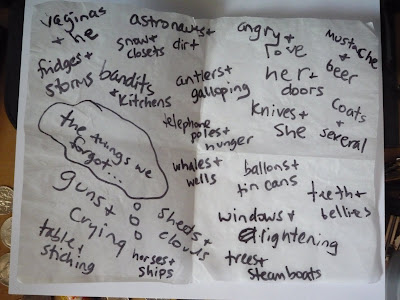 vaginas
+ he
astronauts +
dirt
snow +
closets
angry +
love
mustache
+
beer
fridges +
storms
bandits
+ kitchens
antlers +
galloping
her +
doors
coats
+
several
knives +
she
telephone
poles +
hunger
the things we
forgot...
whales +
wells
ballons +
tin cans
teeth +
bellies
guns +
crying
sheds +
clouds
windows +
lightening
table +
stiching
horses +
ships
trees +
steamboats